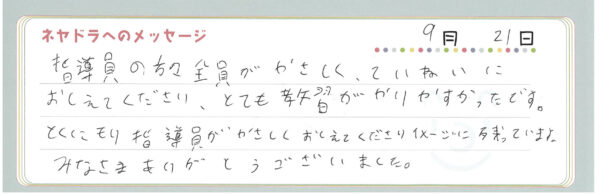 ネヤドラへのメッセージ 9月 21日
指導員の方々全員がやさしく、ていねいに
おしえてくださり、とても教習がやりやすかったです。
とくにもり指導員がやさしくおしえてくださりイメージに残っています。
みなさまありがとうございました。